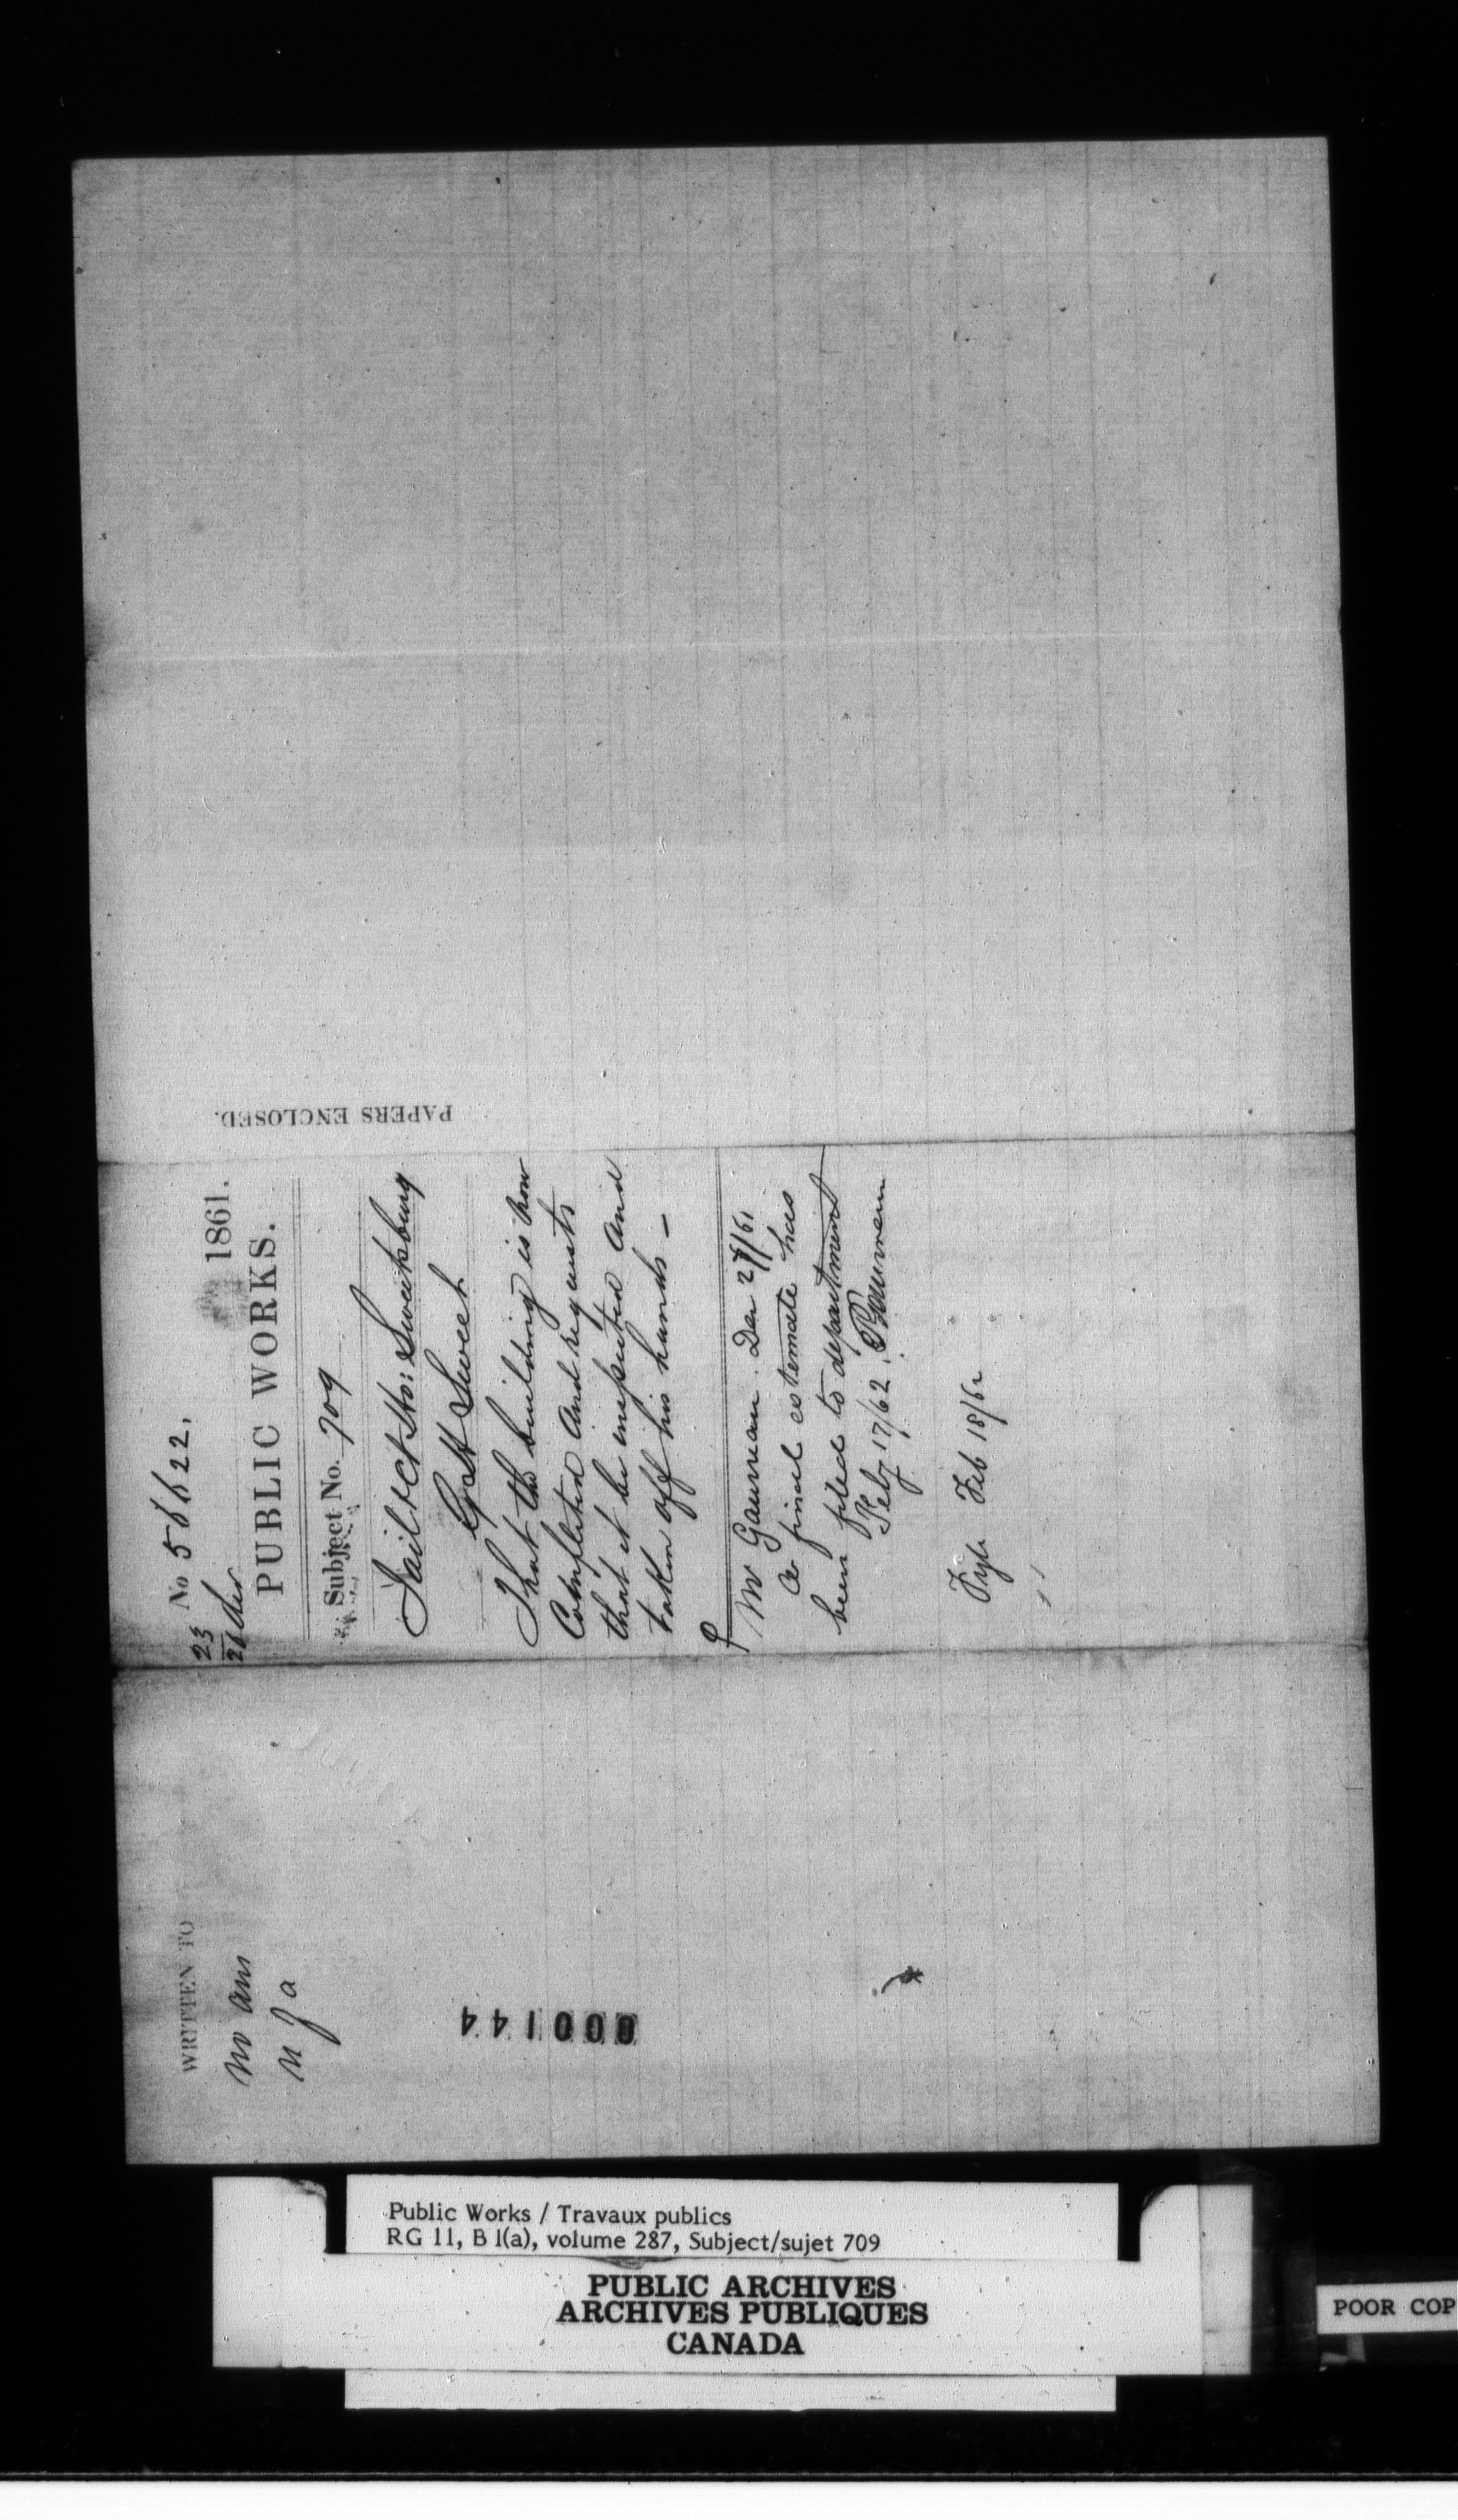 No 56622.
23
26 Dec 1861.
PUBLIC WORKS.
Subject No. 709
Jail & Ct Ho: Sweetsburg
G H Sweet
That the building is now
Completed and requests
that it be inspected and
taken off his hands —
Mr Gauvreau. Dec 27/61
A final estimate has
been filed to department
Feby 17/62.
Fyle Feb 18/62
PAPERS ENCLOSED.
WRITTEN TO
no ans
n f a
000144
Public Works / Travaux publics
RG 11, B 1(a), volume 287, Subject/sujet 709
PUBLIC ARCHIVES
ARCHIVES PUBLIQUES
CANADA
POOR COP